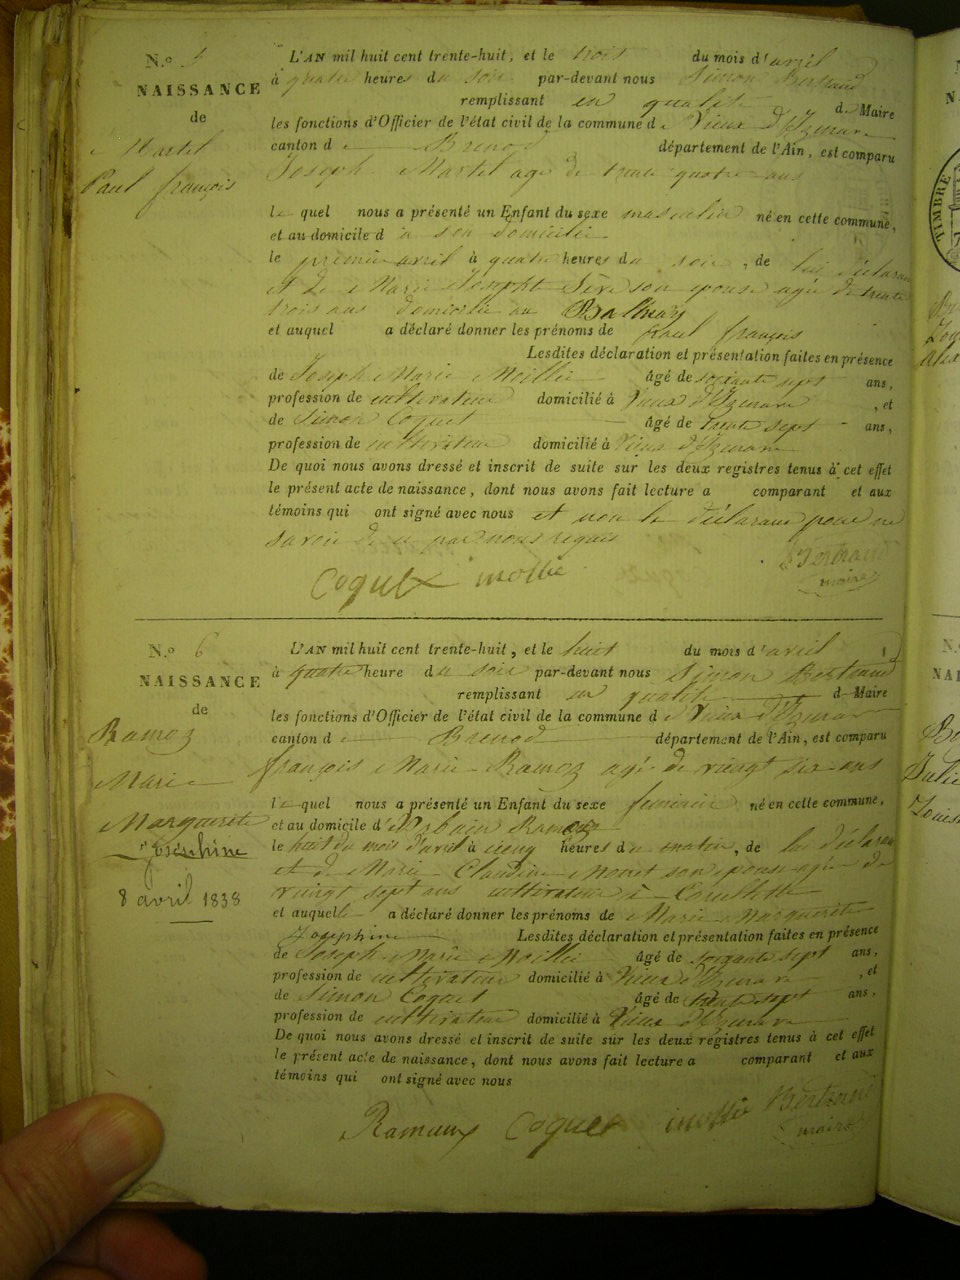 N.o 5
NAISSANCE
de
Martel
Paul françois
L'AN mil huit cent trente-huit, et le trois du mois d'avril
à quatre heures du soir par-devant nous Simon Bertrand
remplissant en qualité de Maire
les fonctions d'Officier de l'état civil de la commune de Vieux d'Izenave
canton de Brenod département de l'Ain, est comparu
Joseph Martel agé de trente quatre ans
le quel nous a présenté un Enfant du sexe masculin né en cette commune,
et au domicile d à son domicile
le premier avril à quatre heures du soir, de lui déclarant
et de Marie Josephte son epouse agée de trente
trois ans domicilié au
et auquel a déclaré donner les prénoms de Paul françois
Lesdites déclaration et présentation faites en présence
de Joseph Marie Moillie âgé de soixante sept ans,
profession de cultivateur domicilié à Vieux d'Izenave, et
de Simon Coquet âgé de trente sept ans,
profession de cultivateur domicilié à Vieux d'Izenave
De quoi nous avons dressé et inscrit de suite sur les deux registres tenus à cet effet
le présent acte de naissance, dont nous avons fait lecture a comparant et aux
témoins qui ont signé avec nous et non le déclarant pour ne
savoir de ce par nous requis
Coquet mollie Bertrand
maire
N.o 6
NAISSANCE
de
Ramoz
Marie
Marguerite
Joséphine
8 avril 1838
L'AN mil huit cent trente-huit, et le huit du mois d'avril
à quatre heure du soir par-devant nous Simon Bertrand
remplissant en qualité d Maire
les fonctions d'Officier de l'état civil de la commune de Vieux d'Izenave
canton de Brenod département de l'Ain, est comparu
françois Marie Ramoz agé de vingt six ans
le quel nous a présenté un Enfant du sexe feminin né en cette commune,
et au domicile d'Urbain Ramoz
le huit du mois d'avril à cinq heures du matin, de lui déclarant
et de Marie Claudine Monet son epouse agée de
vingt sept ans cultivateur à
et auquelle a déclaré donner les prénoms de Marie Marguerite
Josephine Lesdites déclaration et présentation faites en présence
de Joseph Marie Moillie âgé de soixante sept ans,
profession de cultivateur domicilié à Vieux d'Izenave, et
de Simon Coquet âgé de trente sept ans,
profession de cultivateur domicilié à Vieux d'Izenave
De quoi nous avons dressé et inscrit de suite sur les deux registres tenus à cet effet
le présent acte de naissance, dont nous avons fait lecture a comparant et aux
témoins qui ont signé avec nous
Coquet mollie Bertrand
maire
TIMBRE